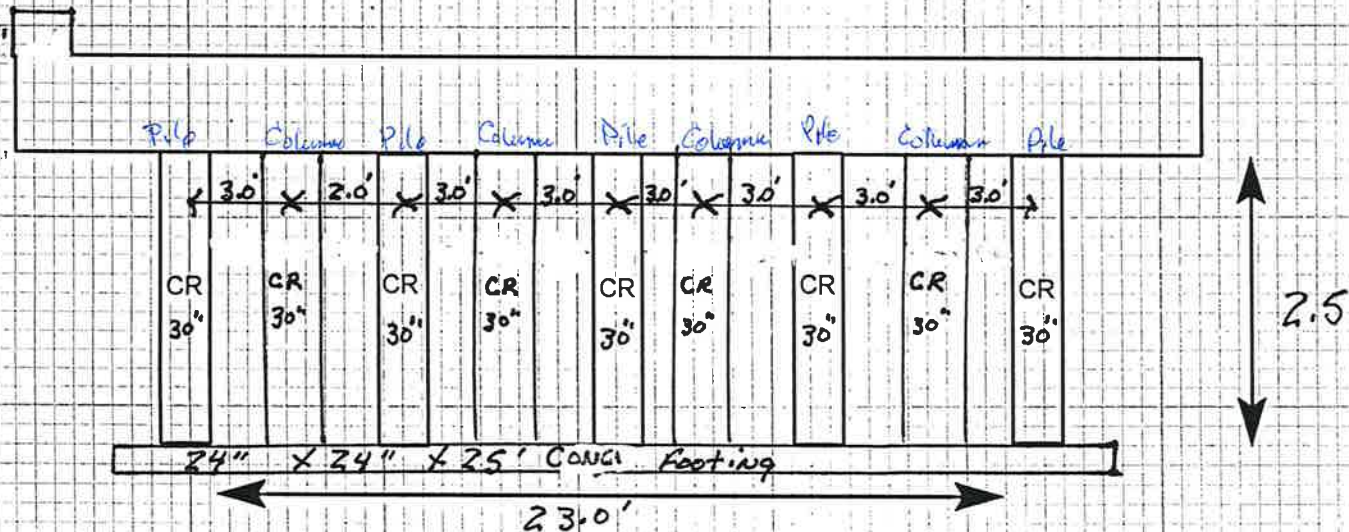 Pile Column Pile Column Pile Column Pile Column Pile
3.0' 2.0' 3.0' 3.0' 3.0' 3.0' 3.0' 3.0'
CR CR CR CR CR CR CR CR CR
30" 30" 30" 30" 30" 30" 30" 30" 30"
2.5
24" X 24" X 25' CONC. Footing
23.0'